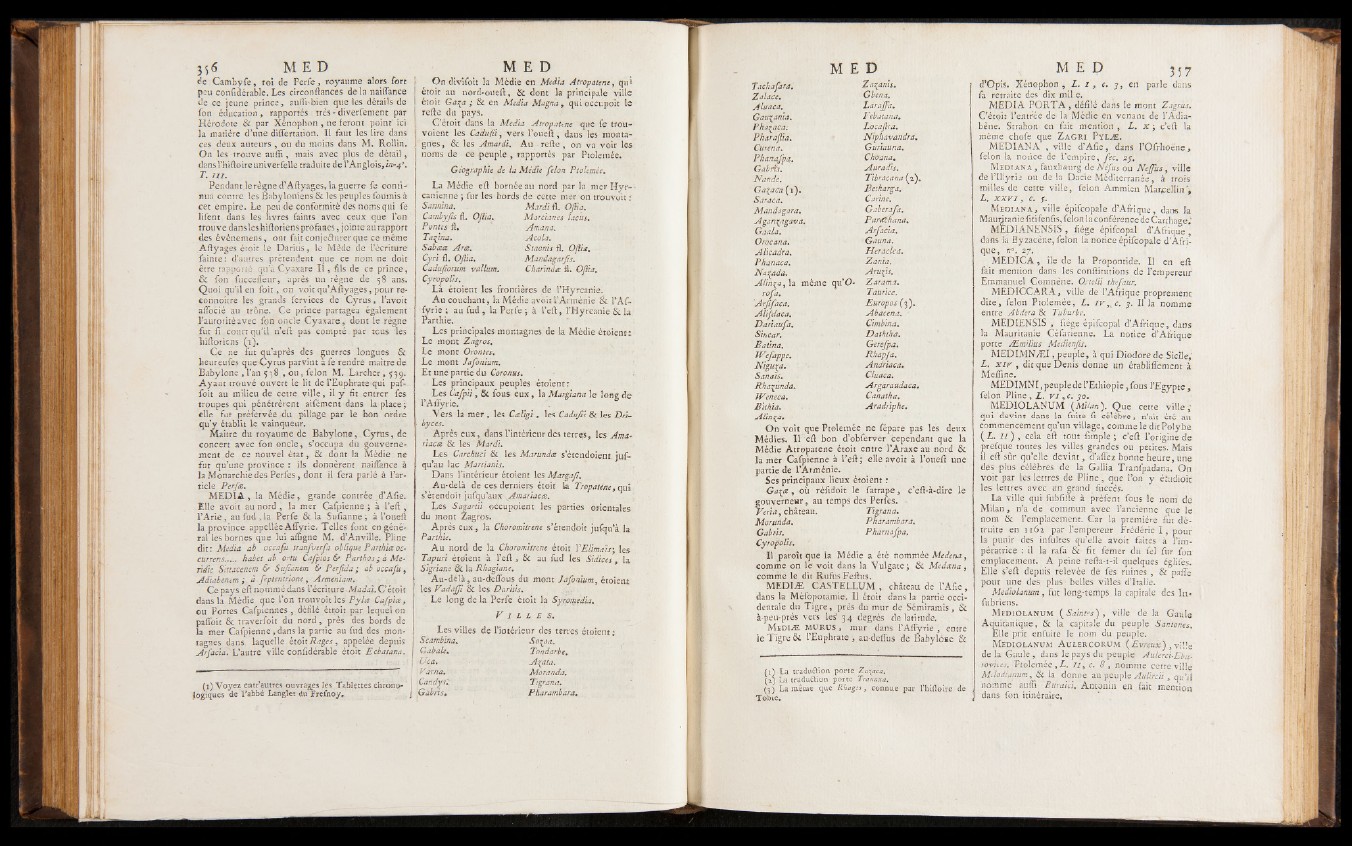 356 MED
de Cambyſe, roi de Perſe, royaume alors fort
peu conſidérable. Les circonſtances de la naiſſance
de ce jeune prince, auſſi-bien que les détails de
ſon éducation, rapportés très-diverſement par
Hérodote & par Xénophon, ne feront point ici
la matière d'une diſſertation. Il faut les lire dans
ces deux auteurs, ou du moins dans M. Rollin.
On les trouve auſſi, mais avec plus de détail,
dans l'hiſtoire univerſelle traduite de l'Anglois, in-4°.
T. III.
Pendant le règne d'Aſtyages, la guerre ſe conti-
nua contre les Babyloniens & les peuples ſoumis à
cet empire. Le peu de conformité des noms qui ſe
liſent dans les livres ſaints avec ceux que l'on
trouve dans les hiſtoriens profanes, jointe au rapport
des évènemens, ont fait conjecturer que ce même
Aſtyages étoit le Darius, le Mède de l'écriture
ſainte: d'autres prétendent que ce nom ne doit
être rapporté qu'à Cyaxare II, fils de ce prince,
& ſon ſucceſſeur, après un règne de 58 ans.
Quoi qu'il en ſoit, on voit qu'Aſtyages, pour re-
connoître les grands ſervices de Cyrus, l'avoit
aſſocié au trône. Ce prince partagea également
l'autorité avec ſon oncle Cyaxare, dont le règne
fut ſi court qu'il n'eſt pas compté par tous les
hiſtoriens (1).
Ce ne fut qu'après des guerres longues &
heureuſes que Cyrus parvint à ſe rendre maître de
Babylone, l'an 538, ou, ſelon M. Larcher, 539.
Ayant trouvé ouvert le lit de l'Euphrate qui paſ-
ſoit au milieu de cette ville, il y fit entrer ſes
troupes qui pénétrèrent aiſément dans la place;
elle fut préſervée du pillage par le bon ordre
qu'y établit le vainqueur.
Maître du royaume de Babylone, Cyrus, de
concert avec ſon oncle, s'occupa du gouverne-
ment de ce nouvel état, & dont la Médie ne
fut qu'une province: ils donnèrent naiſſance à
la Monarchie des Perſes, dont il ſera parlé à l'ar-
ticle Perſæ.
MEDIA, la Médie, grande contrée d'Aſie.
Elle avoit au nord, la mer Caſpienne; à l'eſt,
l'Arie, au ſud, la Perſe & la Suſianne; à l'oueſt
la province appellée Aſſyrie. Telles ſont en géné-
ral les bornes que lui aſſigne M. d'Anville. Pline
dit: Media ab occaſu tranſverſa oblique Parthiæ oc-
currens..... habet ab ortu Caſpios & Parthos; à Me-
ridie Sittacenem & Suſianem & Perſida; ab occaſu,
Adiabenem; à ſeptentrione, Armeniam.
Ce pays eſt nommé dans l'écriture Madaï. C'étoit
dans la Médie que l'on trouvoit les Pylæ Caſpiæ,
ou Portes Caſpiennes, défilé étroit par lequel on
paſſoit & traverſoit du nord, près des bords de
la mer Caſpienne, dans la partie au ſud des mon-
tagnes dans laquelle étoit Rages, appelée depuis
Arſacia. L'autre ville conſidérable étoit Ecbatana.
(1) Voyez entr'autres ouvrages les Tablettes chrono-
logiques de l'abbé Langlet du Freſnoy.
MED
On diviſoit la Médie en Media Atropatene, qui
étoit au nord-oueſt, & dont la principale ville
étoit Gaza; & en Media Magna, qui occupoit le
reſte du pays.
C'étoit dans la Media Atropatene que ſe trou-
voient les Caduſii, vers l'oueſt, dans les monta-
gnes, & les Amardi. Au reſte, on va voir les
noms de ce peuple, rapportés par Ptolemée.
Géographie de la Médie ſelon Ptolemée.
La Médie eſt bornée au nord par la mer Hyr-
canienne; ſur les bords de cette mer on trouvoit:
Sannina. Mardi fl. Oſtia.
Cambyſis fl. Oſtia. Marcianes lacus.
Pontes fl. Amana.
Tazina. Acola.
Sabaæ Aræ. Staonis fl. Oſtia.
Cyri fl. Oſtia. Mandagarſis.
Caduſiorum vallum. Charindæ fl. Oſtia.
Cyropolis.
Là étoient les frontières de l'Hyrcanie.
Au couchant, la Médie avoit l'Arménie & l'Aſ-
ſyrie; au ſud, la Perſe; à l'eſt, l'Hyrcanie & la
Parthie.
Les principales montagnes de la Médie étoient:
Le mont Zagros.
Le mont Orontes.
Le mont Jaſonium.
Et une partie du Coronus.
Les principaux peuples étoient:
Les Caſpii, & ſous eux, la Margiana le long de
l'Aſſyrie.
Vers la mer, les Cæligi, les Caduſii & les Dri-
byces.
Après eux, dans l'intérieur des terres, les Ama-
riacæ & les Mardi.
Les Carchuci & les Marundæ s'étendoient juſ-
qu'au lac Martianis.
Dans l'intérieur étoient les Margaſi.
Au-delà de ces derniers étoit la Tropatene, qui
s'étendoit juſqu'aux Amariacæ.
Les Sagartii occupoient les parties orientales
du mont Zagros.
Après eux, la Choromitrene s'étendoit juſqu'à la
Parthie.
Au nord de la Choromitrene étoit l'Elimais; les
Tapuri étoient à l'eſt, & au ſud les Sidices, la
Sigriane & la Rhagiane.
Au-delà, au-deſſous du mont Jaſonium, étoient
les Vadaſſi & les Darītis.
Le long de la Perſe étoit la Syromedia.
VILLES.
Les villes de l'intérieur des terres étoient:
Scambina. Sazoa.
Gabale. Tondarbe.
Uca. Azata.
Varna. Morunda.
Candys. Tigrana.
Gabris. Pharambara.
MED
Tachaſara. Zazanis.
Zalace. Ghena.
Aluaca. Laraſſa.
Gauzania. Tebatana.
Phazaca. Locaſtra.
Pharaſtia. Niphavandra.
Curena. Guriauna.
Phanaſpa. Choana.
Gabris. Auradis.
Nande. Tibracana (2).
Gazaca (1). Betharga.
Saraca. Carine.
Mandagara. Gaberaſa.
Aganzagava. Parachana.
Gaala. Arſacia.
Orocana. Gauna.
Alicadra. Heraclea.
Phanaca. Zania.
Nazada. Aruzis.
Alinza, la même qu'O- Zarama.
roſa. Taurice.
Arſiſaca. Europos (3).
Aliſdaca. Abacena.
Dariauſa. Cimbina.
Sincar. Daththa.
Batina. Gereſpa.
Weſappe. Rhapſa.
Niguza. Andriaca.
Sanais. Cluaca.
Rhazunda. Argaraudaca.
Weneca. Canatha.
Bithia. Aradriphe.
Alinza.
On voit que Ptolemée ne ſépare pas les deux
Médies. Il eſt bon d'obſerver cependant que la
Médie Atropatene étoit entre l'Araxe au nord &
la mer Caſpienne à l'eſt; elle avoit à l'oueſt une
partie de l'Arménie.
Ses principaux lieux étoient:
Gazæ, où réſidoit le ſatrape, c'eſt-à-dire le
gouverneur, au temps des Perſes.
Veria, château. Tigrana.
Morunda. Pharambara.
Gabris. Pharnaſpa.
Cyropolis.
Il paroît que la Médie a été nommée Medena,
comme on le voit dans la Vulgace; & Medana,
comme le dit Rufus Feſtus.
MEDIÆ CASTELLUM, château de l'Aſie,
dans la Méſopotamie. Il étoit dans la partie occi-
dentale du Tigre, près du mur de Sémiramis, &
à-peu-près vers les 34 degrés de latitude.
MEDIÆ MURUS, mur dans l'Aſſyrie, entre
le Tigre & l'Euphrate, au-deſſus de Babylone &
(1) La traduction porte Zazaca.
(2) La traduction porte
(3) La même que Rhages, connue par l'hiſtoire de
Tobie.
MED 357
d'Opis. Xénophon, L. I, c. 3, en parle dans
ſa retraite des dix mille.
MEDIA PORTA, défilé dans le mont Zagrus.
C'étoit l'entrée de la Médie en venant de l'Adia-
bène. Strabon en fait mention, L. X; c'eſt la
même choſe que ZAGRI PYLÆ.
MEDIANA, ville d'Aſie, dans l'Oſrhoène,
ſelon la notice de l'empire, ſec. 25.
MEDIANA, fauxbourg de Neſus ou Neſſus, ville
de l'Illyrie ou de la Dacie Méditerranée, à trois
milles de cette ville, ſelon Ammien Marcellin,
L. XXVI, c. 5.
MEDIANA, ville épiſcopale d'Afrique, dans la
Mauritanie ſitifenſis, ſelon la conférence de Carthage.
MEDIANENSIS, ſiége épiſcopal d'Afrique,
dans la Byzacène, ſelon la notice épiſcopale d'Afri-
que, n°. 27.
MEDICA, île de la Propontide. Il en eſt
fait mention dans les conſtitutions de l'empereur
Emmanuel Comnène. Ortelii theſaur.
MEDICCARA, ville de l'Afrique proprement
dite, ſelon Ptolemée, L. IV, c. 3. Il la nomme
entre Abdera & Tuburbo.
MEDIENSIS, ſiége épiſcopal d'Afrique, dans
la Mauritanie Céſarienne. La notice d'Afrique
porte Æmilius Medienſis.
MEDIMNÆI, peuple, à qui Diodore de Sicile,
L. XIV, dit que Denis donne un établiſſement à
Meſſine.
MEDIMNI, peuple de l'Ethiopie, ſous l'Egypte,
ſelon Pline, L. VI, c. 30.
MEDIOLANUM (Milan). Que cette ville,
qui devint dans la ſuite ſi célèbre, n'ait été au
commencement qu'un village, comme le dit Polybe
(L. II), cela eſt tout ſimple; c'eſt l'origine de
preſque toutes les villes grandes ou petites. Mais
il eſt sûr qu'elle devint, d'aſſez bonne heure, une
des plus célèbres de la Gallia Tranſpadana. On
voit par les lettres de Pline, que l'on y étudioit
les lettres avec un grand ſuccès.
La ville qui ſubſiſte à préſent ſous le nom de
Milan, n'a de commun avec l'ancienne que le
nom & l'emplacement. Car la première fut dé-
truite en 1162 par l'empereur Frédéric I, pour
la punir des inſultes qu'elle avoit faites à l'im-
pératrice: il la raſa & fit ſemer du ſel ſur ſon
emplacement. A peine reſta-t-il quelques égliſes.
Elle s'eſt depuis relevée de ſes ruines, & paſſe
pour une des plus belles villes d'Italie.
Mediolanum, fut long-temps la capitale des In-
ſubriens.
MEDIOLANUM (Saintes), ville de la Gaule
Aquitanique, & la capitale du peuple Santones.
Elle prit enſuite le nom du peuple.
MEDIOLANUM AULERCORUM (Evreux), ville
de la Gaule, dans le pays du peuple Aulerci-Ebu-
rovices. Ptolemée, L. II, c. 8, nomme cette ville
Mediolanum, & la donne au peuple Aulircii, qu'il
nomme auſſi Buraici. Antonin en fait mention
dans ſon itinéraire.